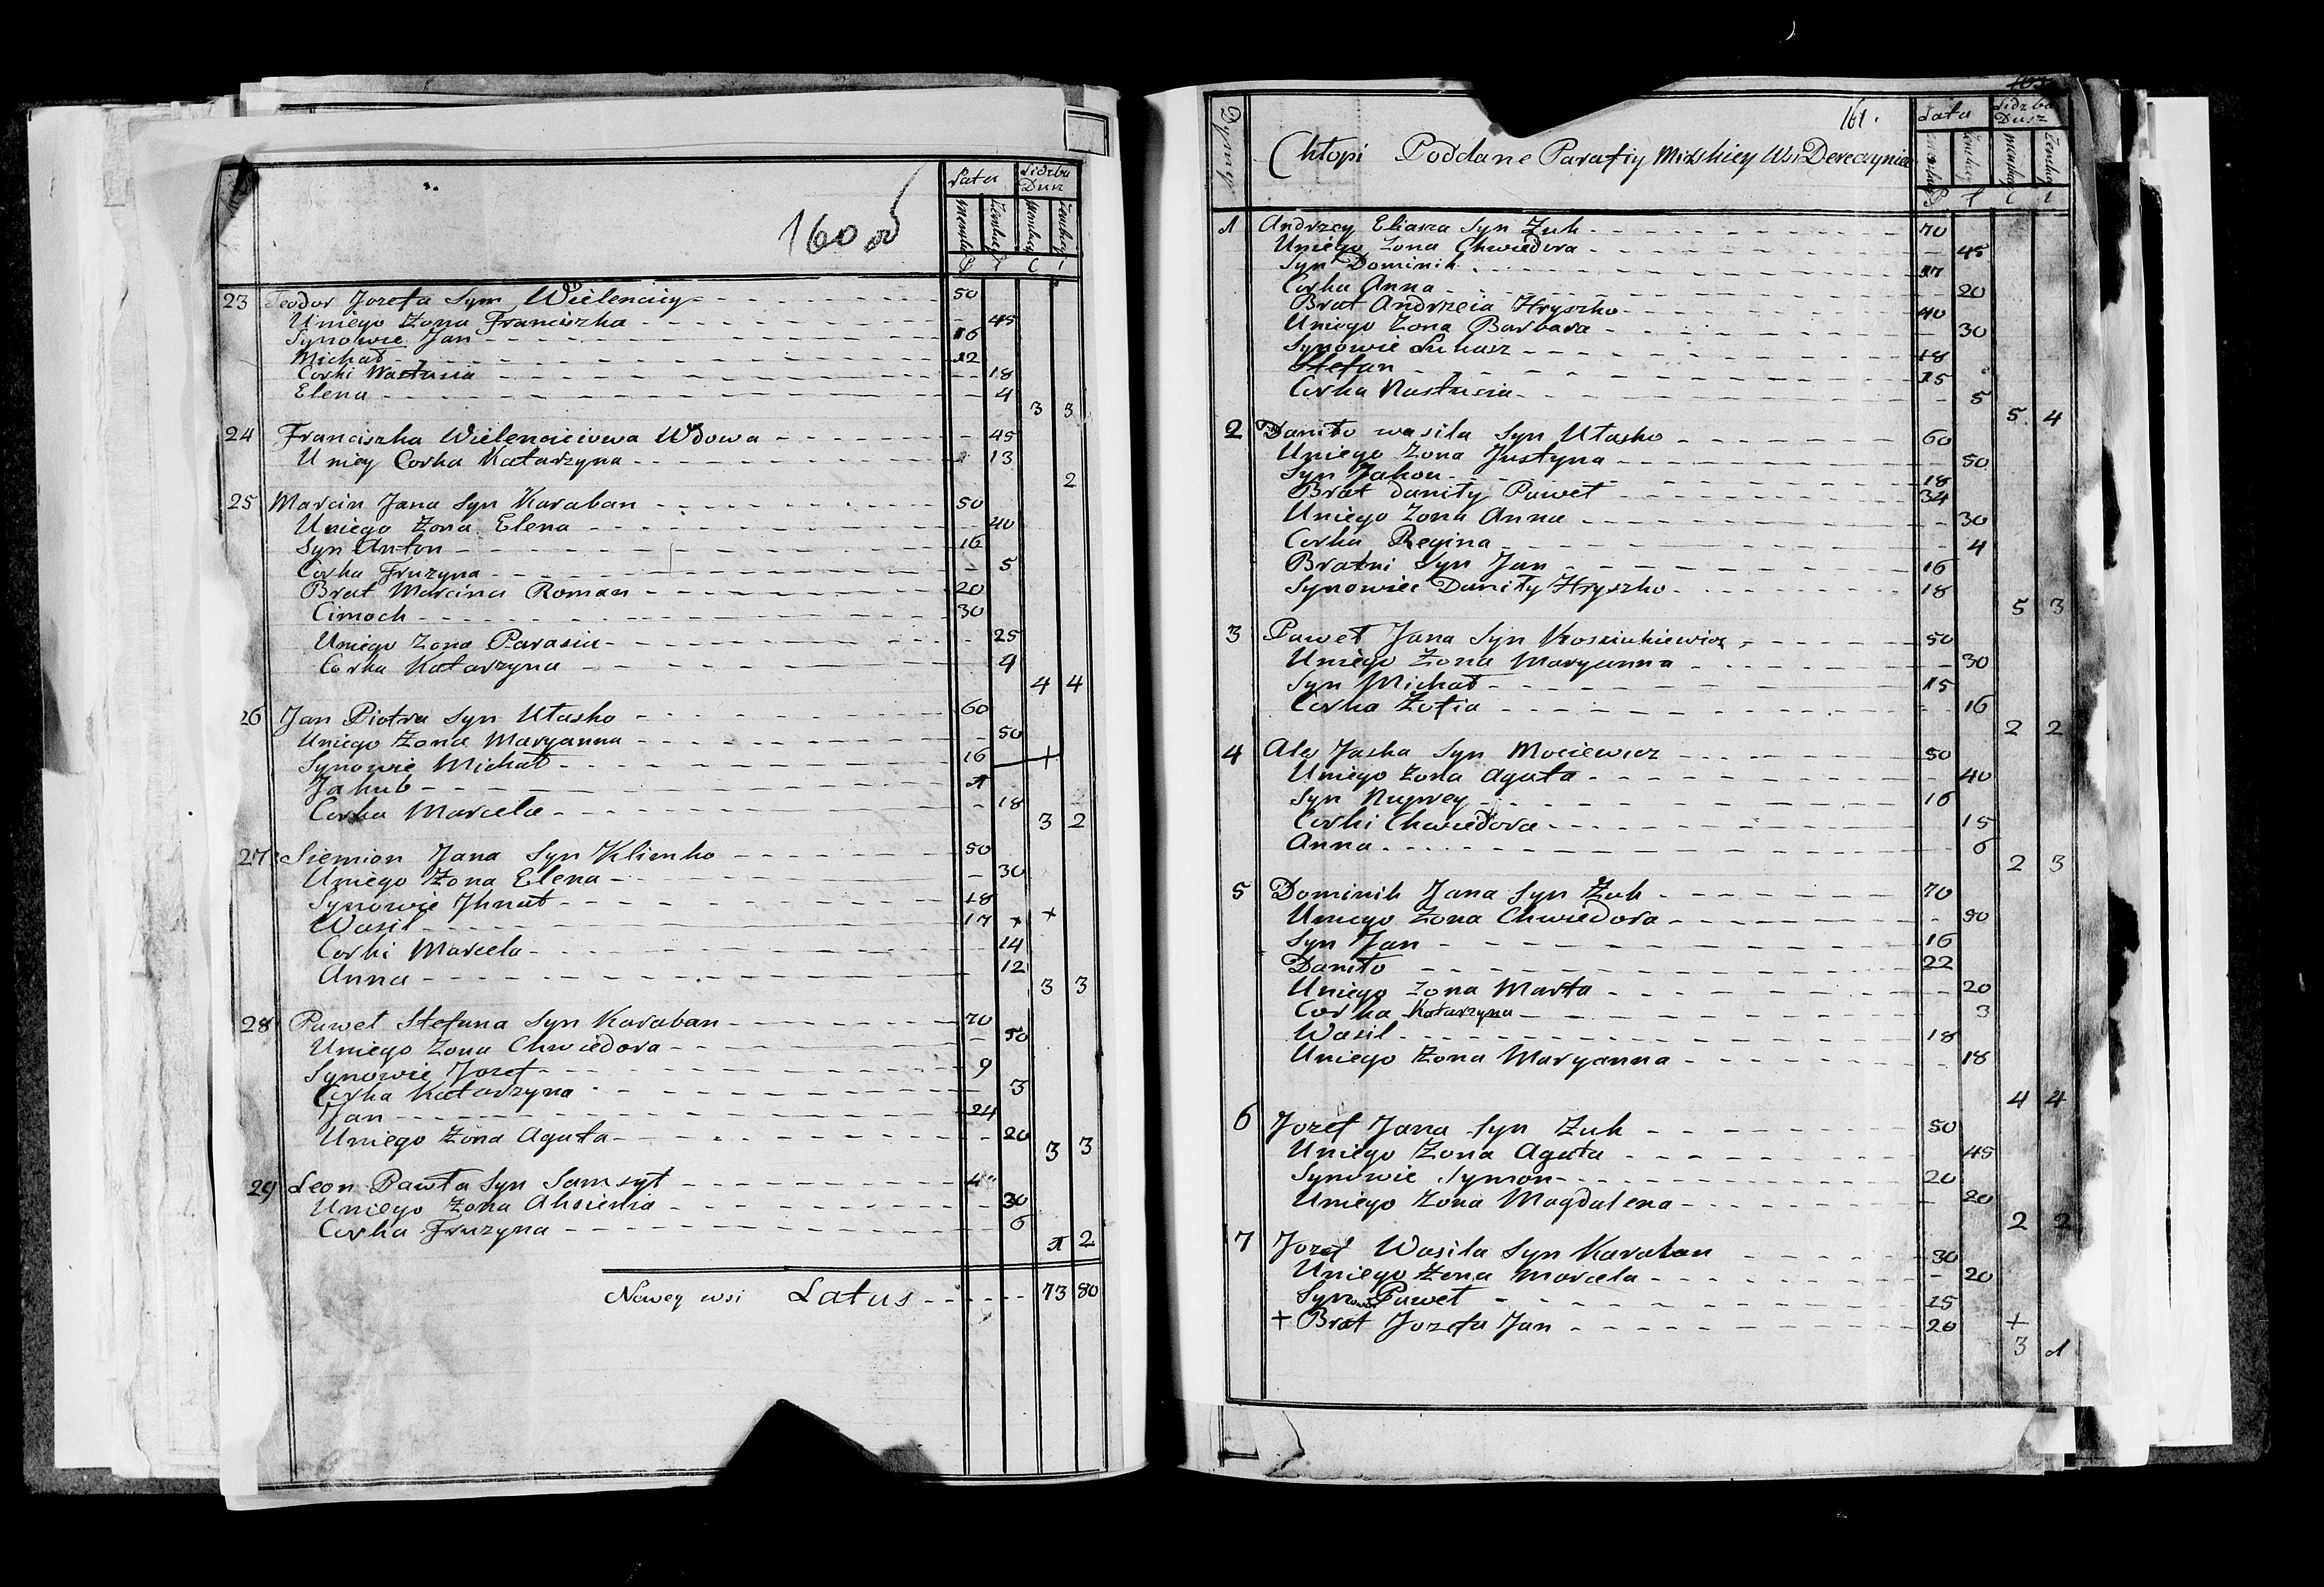 160 об
Lata Lidzba Dusz
Męskie Zenskie Męskiey Zenskiey
P L C 1
23 Teodor Jozefa Syn Wielenciey 50
Uniego Zona Franciszka 45
Synowie Jan 16
Michał 12
Corki Nastusia 18
Elena 4
3 3
24 Franciszka Wielenciciowa Wdowa 45
Uniey Corka Katarzyna 13
2
25 Marcin Jana Syn Karaban 50
Uniego Zona Elena 40
Syn Anton 16
Corka Fruzyna 5
Brat Marcina Roman 20
Cimoch 30
Uniego Zona Parasia 25
Corka Katarzyna 4
4 4
26 Jan Piotra Syn Utasko 60
Uniego Zona Maryanna 50
Synowie Michał 16 +
Jakub 1
Corka Marcela 18
3 2
27 Siemion Jana Syn Klimko 50
Uniego Zona Elena 30
Synowie Jhnat 18 +
Wasil 17 +
Corki Marcela 14
Anna 12
3 3
28 Paweł Stefana Syn Karaban 70
Uniego Zona Chwiedora 50
Synowie Jozef 9
Corka Katarzyna 3
Jan 24
Uniego Zona Agata 20
3 3
29 Leon Pawła Syn Samsyt 40
Uniego Zona Aksienia 30
Corka Fruzyna 6
1 2
Nowey wsi Latus 73 80
161.
Dymy
Chłopi Poddane Parafiy Mizskiey Wsi Dereczynia
Lata Lidzba Dusz
Męskie Zenskie Męskiey Zenskiey
P L C 1
1 Andrzey Eliasza Syn Zuk 70
Uniego Zona Chwiedora 45
Syn Dominik 17
Corka Anna 20
Brat Andrzeia Hryszko 40
Uniego Zona Barbara 30
Synowie Lukasz 18
Stefan 15
Corka Nastusia 5
5 4
2 Daniło wasila Syn Utasko 60
Uniego Zona Justyna 50
Syn Jakou 18
Brat daniły Paweł 34
Uniego Zona Anna 30
Corka Regina 4
Bratni Syn Jan 16
Synowiec Daniły Hryszko 18
5 3
3 Paweł Jana Syn Kosciukiewicz 50
Uniego Zona Maryanna 30
Syn Michał 15
Corka Zofia 16
2 2
4 Ale Jaska Syn Mociewicz 50
Uniego Zona Agata 40
Syn 16
Corki Chwiedora 15
Anna 6
2 3
5 Dominik Jana Syn Zuk 70
Uniego Zona Chwiedora 50
Syn Jan 16
Daniło 22
Uniego Zona Marta 20
Corka Katarzyna 3
Wasil 18
Uniego Zona Maryanna 18
4 4
6 Jozef Jana Syn Zuk 50
Uniego Zona Agata 45
Synowie Symon 20
Uniego Zona Magdalena 20
2 2
7 Jozef Wasila Syn Karaban 30
Uniego Zona Marcela 20
Synowiec Paweł 15
+ Brat Jozefa Jan 20 +
3 1